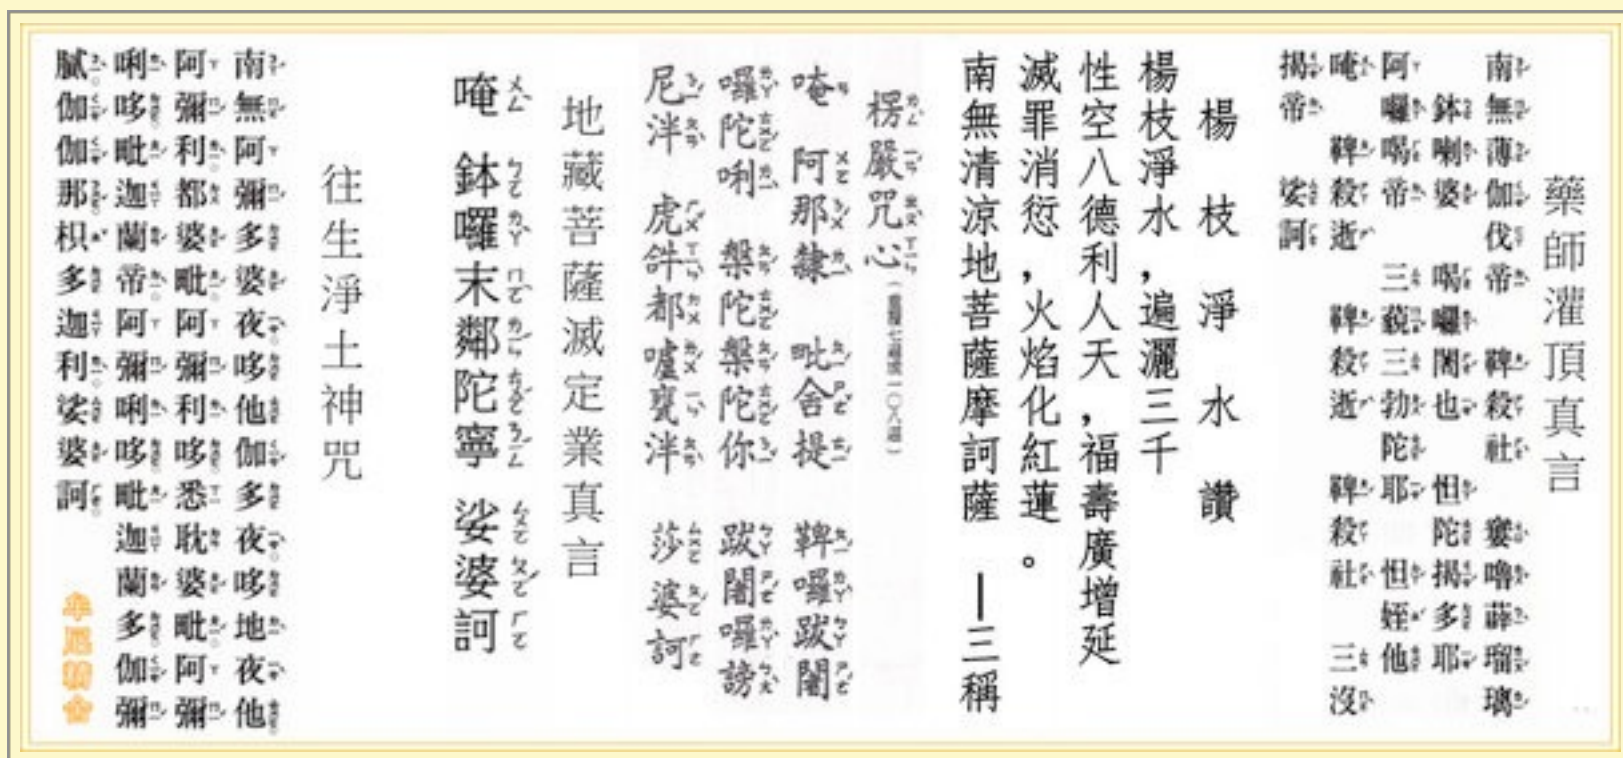 藥師灌頂真言
南無薄伽伐帝 鞞殺社 窶嚕薜瑠璃
鉢喇婆 喝囉闍也 怛陀揭多耶
阿囉喝帝 三藐三勃陀耶 怛姪他
唵 鞞殺逝 鞞殺逝 鞞殺社 三沒
揭帝 娑訶
楊枝淨水讚
楊枝淨水,遍灑三千
性空八德利人天,福壽廣增延
滅罪消愆,火焰化紅蓮。
南無清涼地菩薩摩訶薩 —三稱
楞嚴咒心
唵 阿那隸 毗舍提 鞞囉跋闍
囉陀唎 槃陀槃陀你 跋闍囉謗
尼泮 虎𤙖都嚧甕泮 莎婆訶
地藏菩薩滅定業真言
唵 鉢囉末鄰陀寧 娑婆訶
往生淨土神咒
南無阿彌多婆夜哆他伽多夜哆地夜他
阿彌利都婆毗阿彌利哆悉耽婆毗阿彌
唎哆毗迦蘭帝阿彌唎哆毗迦蘭多伽彌
膩伽伽那枳多迦利娑婆訶
牟尼精舍